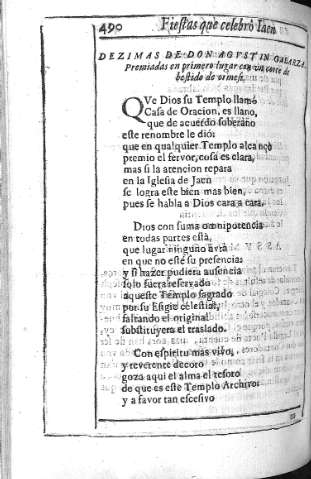 490 Fiestas que celebrò Iaen
DEZIMAS DE DON AGVSTIN GALARZA
Premiadas en primero lugar con un corte de
bestido de ormesi.
QVe Dios su Templo llamó
Casa de Oracion, es llano,
que de acuerdo soberano
este renombre le diò:
que en qualquier Templo alcançò
premio el fervor, cosa es clara,
mas si la atencion repara
en la Iglesia de Jaen
se logra este bien mas bien,
pues se habla a Dios cara a cara.
Dios con suma omnipotencia
en todas partes està,
que lugar ninguno avrà
en que no estè su presencia:
y si hazer pudiera ausencia
solo fuera reservado
aqueste Templo sagrado
por su Esigie celestial,
faltando el original
substituyera el traslado.
Con espiritu mas vivo,
y reverente decoro
goza aqui el alma el tesoro
de que es este Templo Archivo:
y a favor tan escesivo